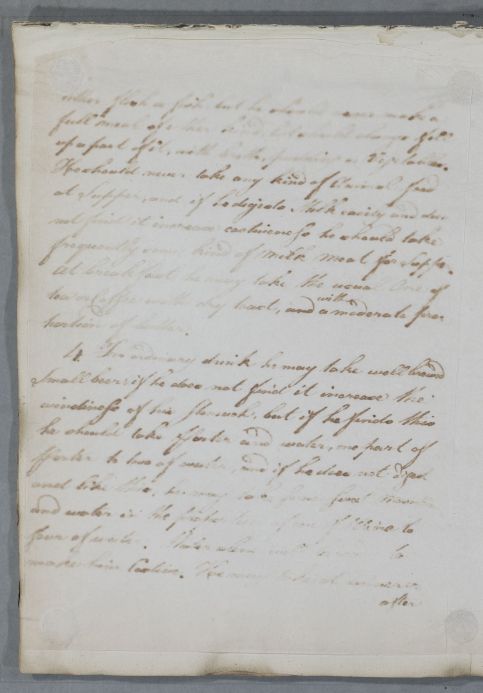 either flesh or fish, but he should never make a
full meal of either kind, but should always fill
up a part of it, with broth, pudding or Vegetables.
He should never take any kind of Animal food
at Supper, and if he digests Milk easily and does
not find it increase costiveness he should take
frequently some kind of milk meat for Supper.
At breakfast he may take the usual One of
tea or Coffee with dry toast, and with a moderate pro
portion of butter.
4. For ordinary drink he may take well brewed
small beer if he does not find it increase the
windiness of his stomach, but if he finds this
he should take Porter and water, one part of
Porter to two of water, and if he does not
and like this, he may
and water in the proportion of one of Wine to
four of water. to
make him Costive. He may
after